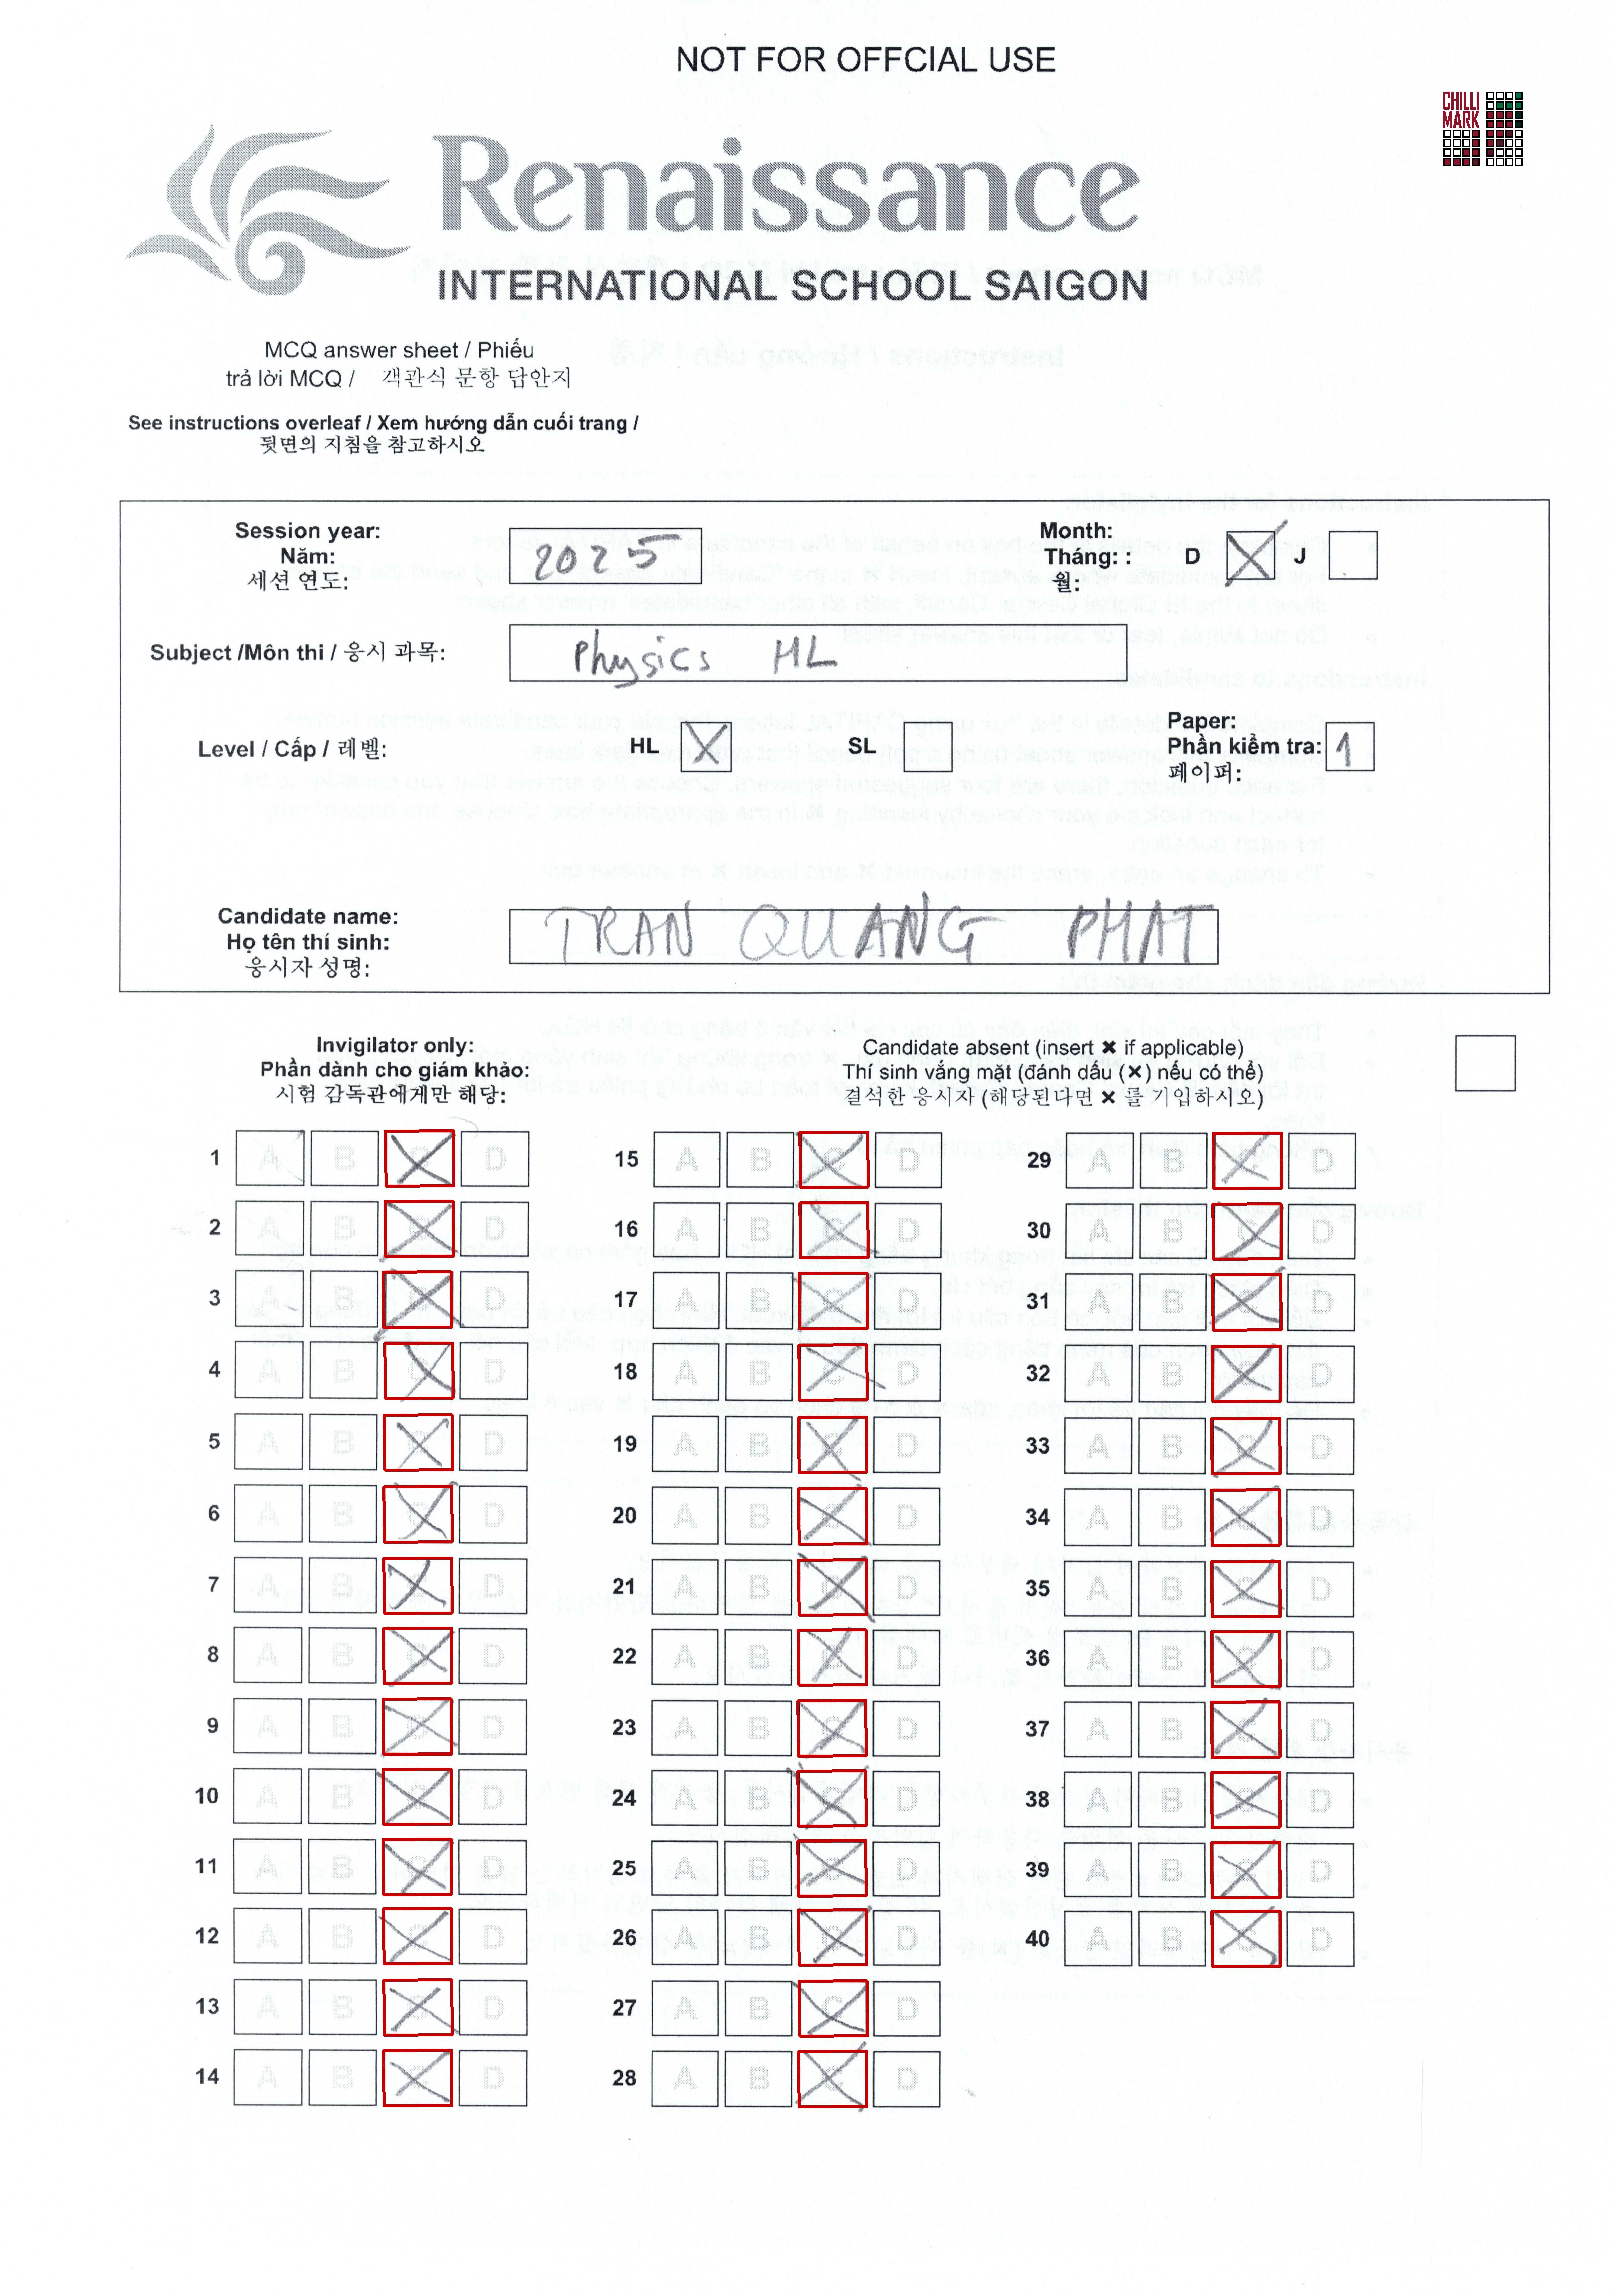 NOT FOR OFFCIAL USE
CHILLI
MARK
Renaissance
INTERNATIONAL SCHOOL SAIGON
MCQ answer sheet / Phiếu
trả lời MCQ / 객관식 문항 답안지
See instructions overleaf / Xem hướng dẫn cuối trang /
뒷면의 지침을 참고하시오
Session year:
Năm:
세션 연도:
2025
Month:
Tháng: :
월:
D
J
Subject /Môn thi / 응시 과목:
Physics HL
Level / Cấp / 레벨:
HL
SL
Paper:
Phần kiểm tra:
페이퍼:
1
Candidate name:
Họ tên thí sinh:
응시자 성명:
TRAN QUANG PHAT
Invigilator only:
Phần dành cho giám khảo:
시험 감독관에게만 해당:
Candidate absent (insert ✖ if applicable)
Thí sinh vắng mặt (đánh dấu (✖) nếu có thể)
결석한 응시자 (해당된다면 ✖ 를 기입하시오)
1 A B C D
2 A B C D
3 A B C D
4 A B C D
5 A B C D
6 A B C D
7 A B C D
8 A B C D
9 A B C D
10 A B C D
11 A B C D
12 A B C D
13 A B C D
14 A B C D
15 A B C D
16 A B C D
17 A B C D
18 A B C D
19 A B C D
20 A B C D
21 A B C D
22 A B C D
23 A B C D
24 A B C D
25 A B C D
26 A B C D
27 A B C D
28 A B C D
29 A B C D
30 A B C D
31 A B C D
32 A B C D
33 A B C D
34 A B C D
35 A B C D
36 A B C D
37 A B C D
38 A B C D
39 A B C D
40 A B C D